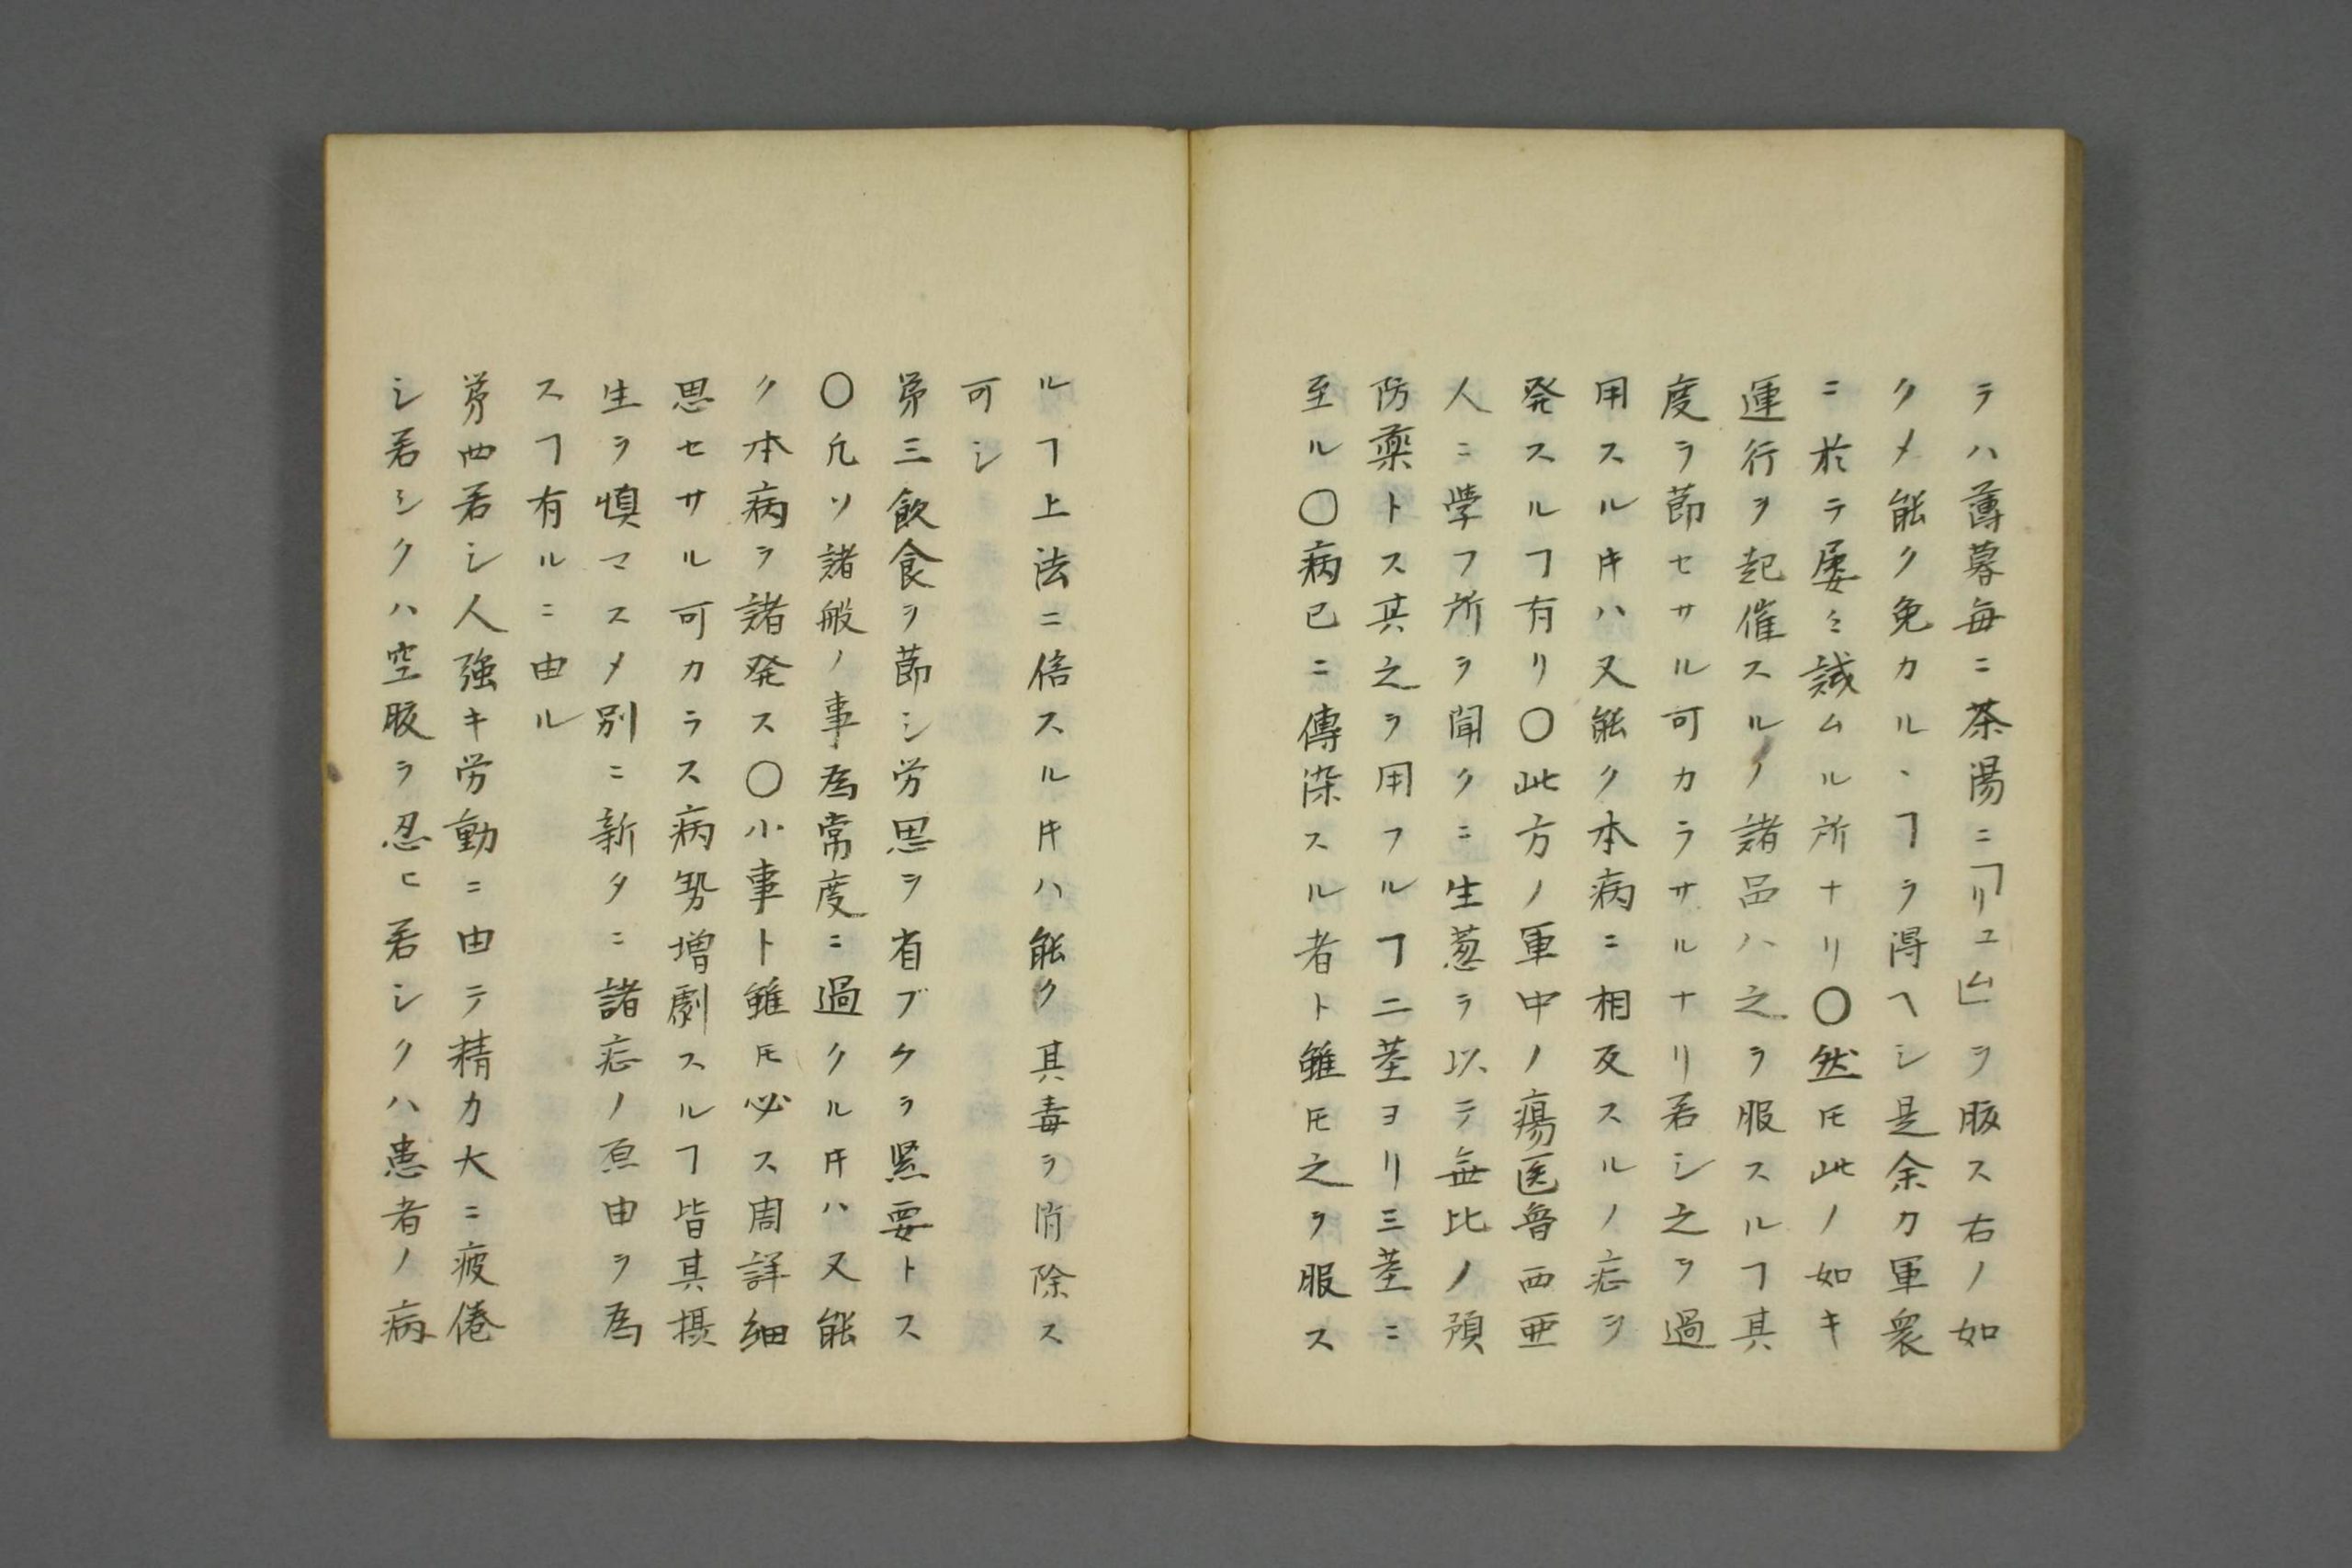 テハ薄暮毎ニ茶湯ニ「リュム」ヲ服ス右ノ如
クメ能ク免カルヽヿヲ得ヘシ是余カ軍衆
ニ於テ屡〻誡ムル所ナリ〇然𪜈此ノ如キ
運行ヲ起催スルノ諸品ハ之ヲ服スルヿ其
度ヲ節セサル可カラサルナリ若シ之ヲ過
用スルキハ又能ク本病ニ相反スルノ症ヲ
発スルヿ有リ〇此方ノ軍中ノ瘍医魯西亜
人ニ学フ所ヲ聞クニ生葱ヲ以テ無比ノ預
防薬トス其之ヲ用フルヿ二莖ヨリ三莖ニ
至ル〇病已ニ傳染スル者ト雖𪜈之ヲ服ス
ルヿ上法ニ倍スルキハ能ク其毒ヲ消除ス
可シ
第三飲食ヲ節シ労思ヲ省ブクヲ緊要トス
〇凡ソ諸般ノ事為常度ニ過クルキハ又能
ク本病ヲ諸発ス〇小事ト雖𪜈必ス周詳細
思セサル可カラス病勢増劇スルヿ皆其摂
生ヲ慎マスメ別ニ新タニ諸症ノ原由ヲ為
スヿ有ルニ由ル
第四若シ人強キ労動ニ由テ精力大ニ疲倦
シ若シクハ空腹ヲ忍ヒ若シクハ患者ノ病